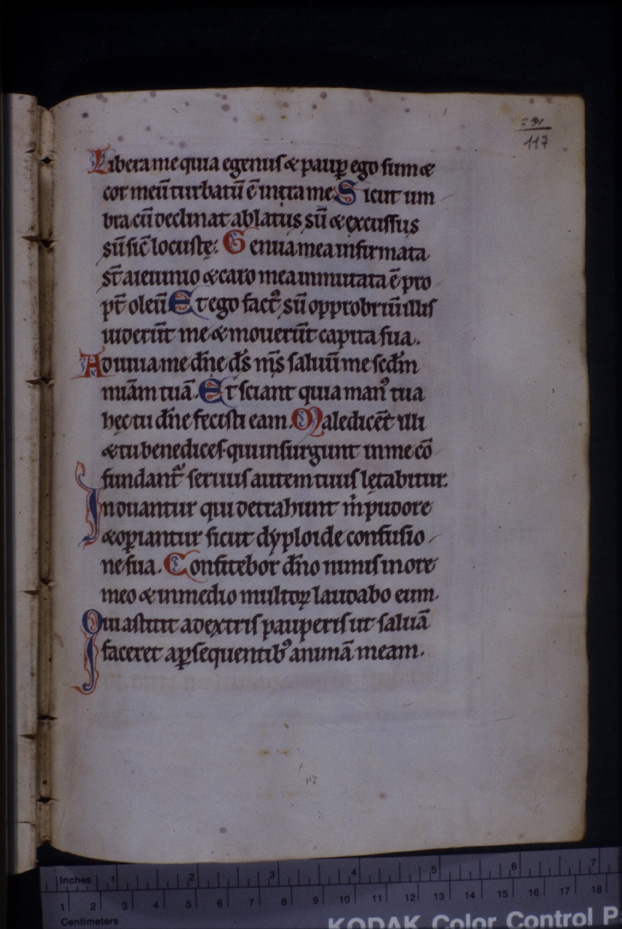 291
117
Libera me quia egenus & paup ego sum &
cor meū turbatū ē intra me. Sicut um
bra cū declinat ablatus sū & excussus
sū sic̄ locustę. Genua mea infirmata
st̄ a ieiunio & caro mea inmutata ē pro
pt̄ oleū Et ego fact᷒ sū opprobriū illis
uiderūt me & mouerūt capita sua.
Adiuua me dn̄e ds̄ ms̄ saluū me fac scdm̄
miam̄ tuā. Et sciant quia man᷒ tua
hęc tu dn̄e fecisti eam. Maledicēt illi
& tu benedices qui insurgunt in me cō
fundant᷑ seruus autem tuus lętabitur.
Induantur qui detrahunt m̄ pudore
& opiantur sicut dyploide confusio
ne sua. Confitebor dn̄o nimis in ore
meo & in medio multoꝝ laudabo eum.
Qui astitit a dextris pauperis ut saluā
faceret a psequentib᷒ animā meam.
117
Inches 1 2 3 4 5 6 7
1 2 3 4 5 6 7 8 9 10 11 12 13 14 15 16 17 18
Centimeters
KODAK Color Control P